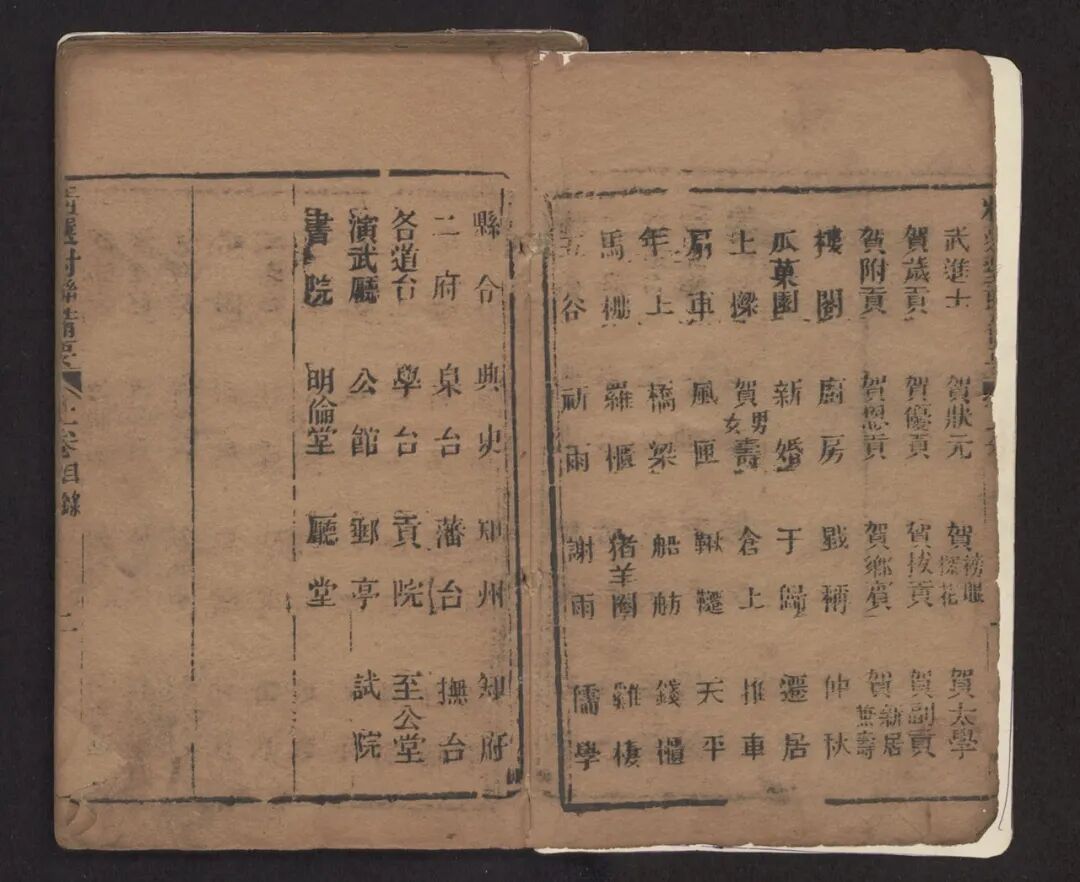 武進士 賀狀元 賀榜眼探花 賀太學
賀歲貢 賀優貢 賀拔貢 賀副貢
賀附貢 賀恩貢 賀鄉賓 賀新居兼壽
樓閣 廚房 戥稱 仲秋
瓜菓園 新婚 于歸 遷居
上樑 賀男女壽 倉上 推車
扇車 風匣 鞦韆 天平
年上 橋梁 船舫 錢櫃
馬棚 羅櫃 猪羊圈 雞棲
五谷 祈雨 謝雨 儒學
縣令 典史 知州 知府
二府 臬台 藩台 撫台
各道台 學台 貢院 至公堂
演武廳 公館 郵亭 試院
書院 明倫堂 廳堂
對聯精要 上卷目錄 二